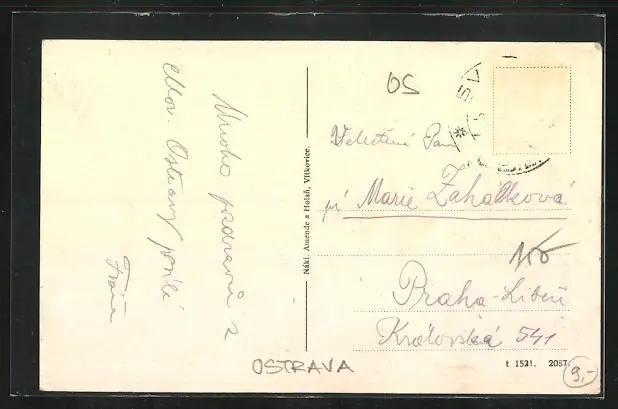 Mnoho pozdravů z
Mor. Ostravy posílá
OS
Velectěná Paní
pí Marie Zahálková
Praha-Libeň
Královská 541
Nákl. Amende a Holaň, Vítkovice.
OSTRAVA
t 1521. 2087.
9,-